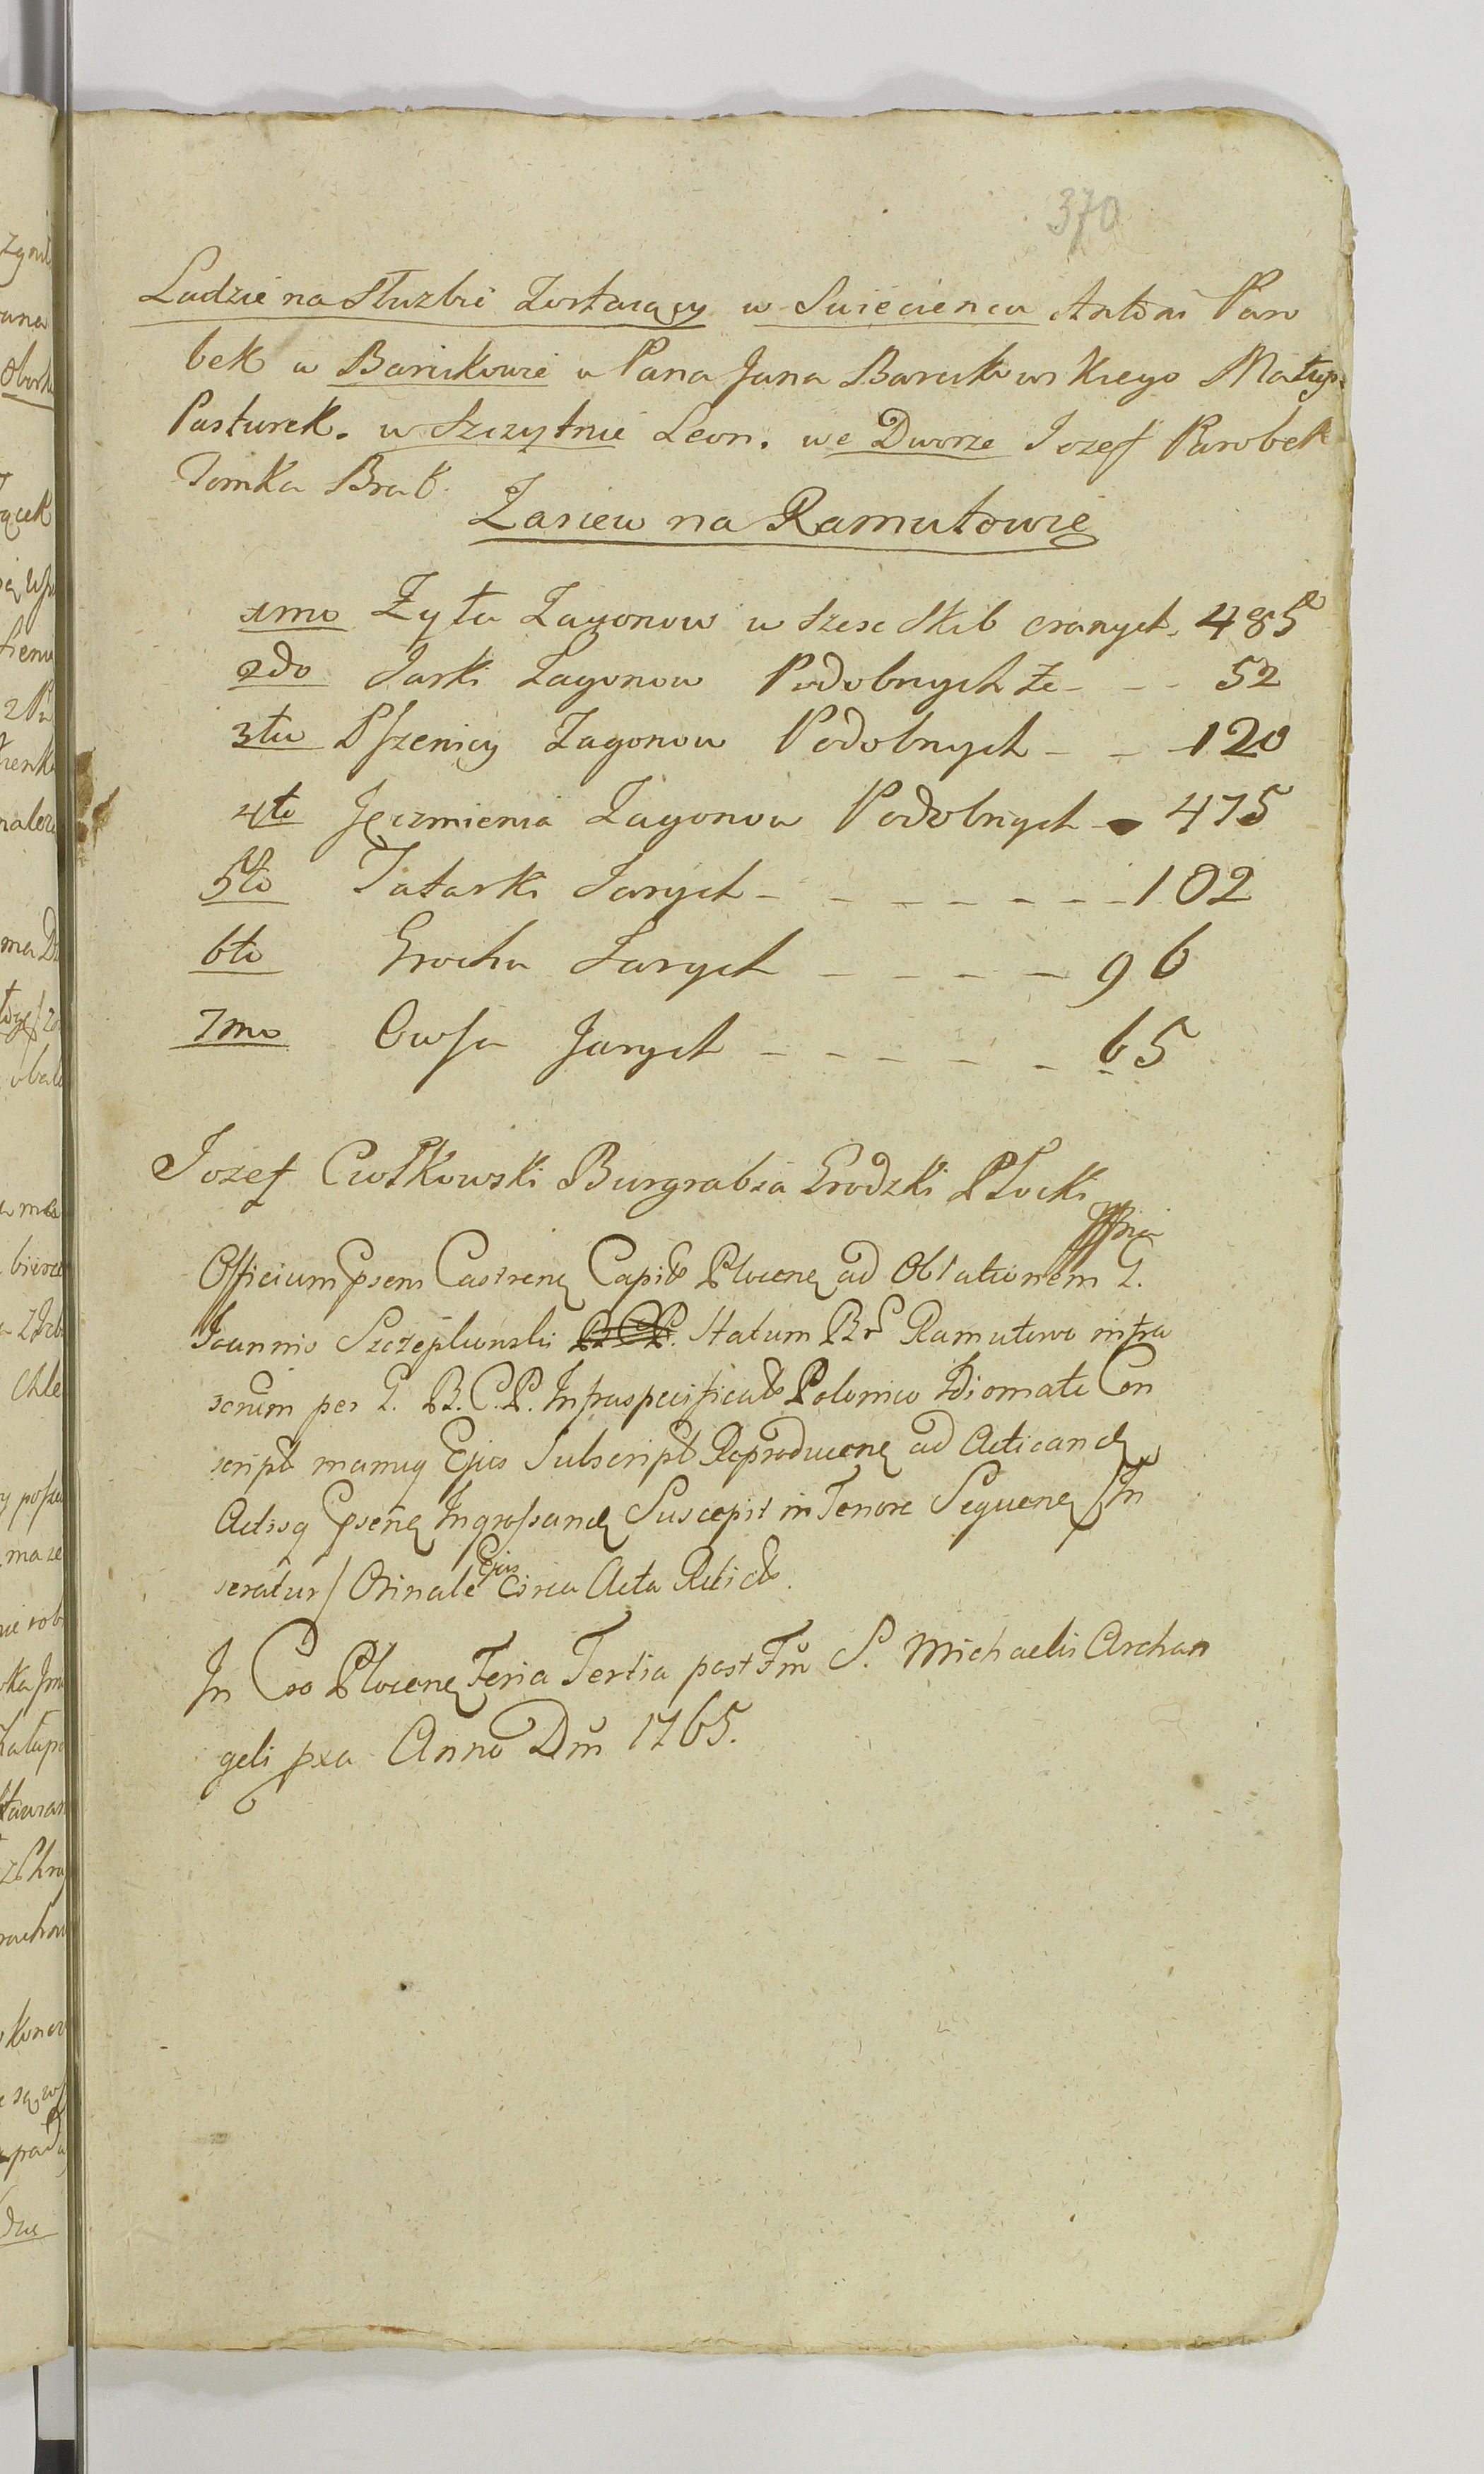 370
Ludzie na Służbie Zostaiący w Swieciencu Antoni Paro
bek w Barcikowie u Pana Jana Barcikowskiego Matysz
Pasturek. w Szczytnie Leon. we Dworze Jozef Parobek
Tomka Brat.
Zasiew na Ramutowie
1mo Zyta Zagonow w szesc Skib oranych. 485
2do Jarki Zagonow Podobnych ze - - - 52
3tio Pszenicy Zagonow Podobnych - - 120
4to Jęczmienia Zagonow Podobnych - 475
5to Tatarki Jarych - - - - - - - 102
6to Grochu Jarych - - - - 96
7mo Owsa Jarych - - - - - 65
Jozef Ciołkowski Burgrabia Grodzki Płocki
Officium Psens Castrene Capitle Plocene ad Oblationem G.
Joannis Szczeplinski B.C.P. Statum Br Ramutowo infra
scrum per G. B.C.P. Infraspecificato Polonico Idiomate Con
script manuq Ejus Subscript Reproducene ad Acticand
Actisq Psene Ingrossand Suscepit in Tenore Sequene /In
seratur/ Orinale Ejus circa Acta Relicto.
In Cro Plocene Feria Tertia post Fm S. Michaelis Archan
geli pxa Anno Dni 1765.